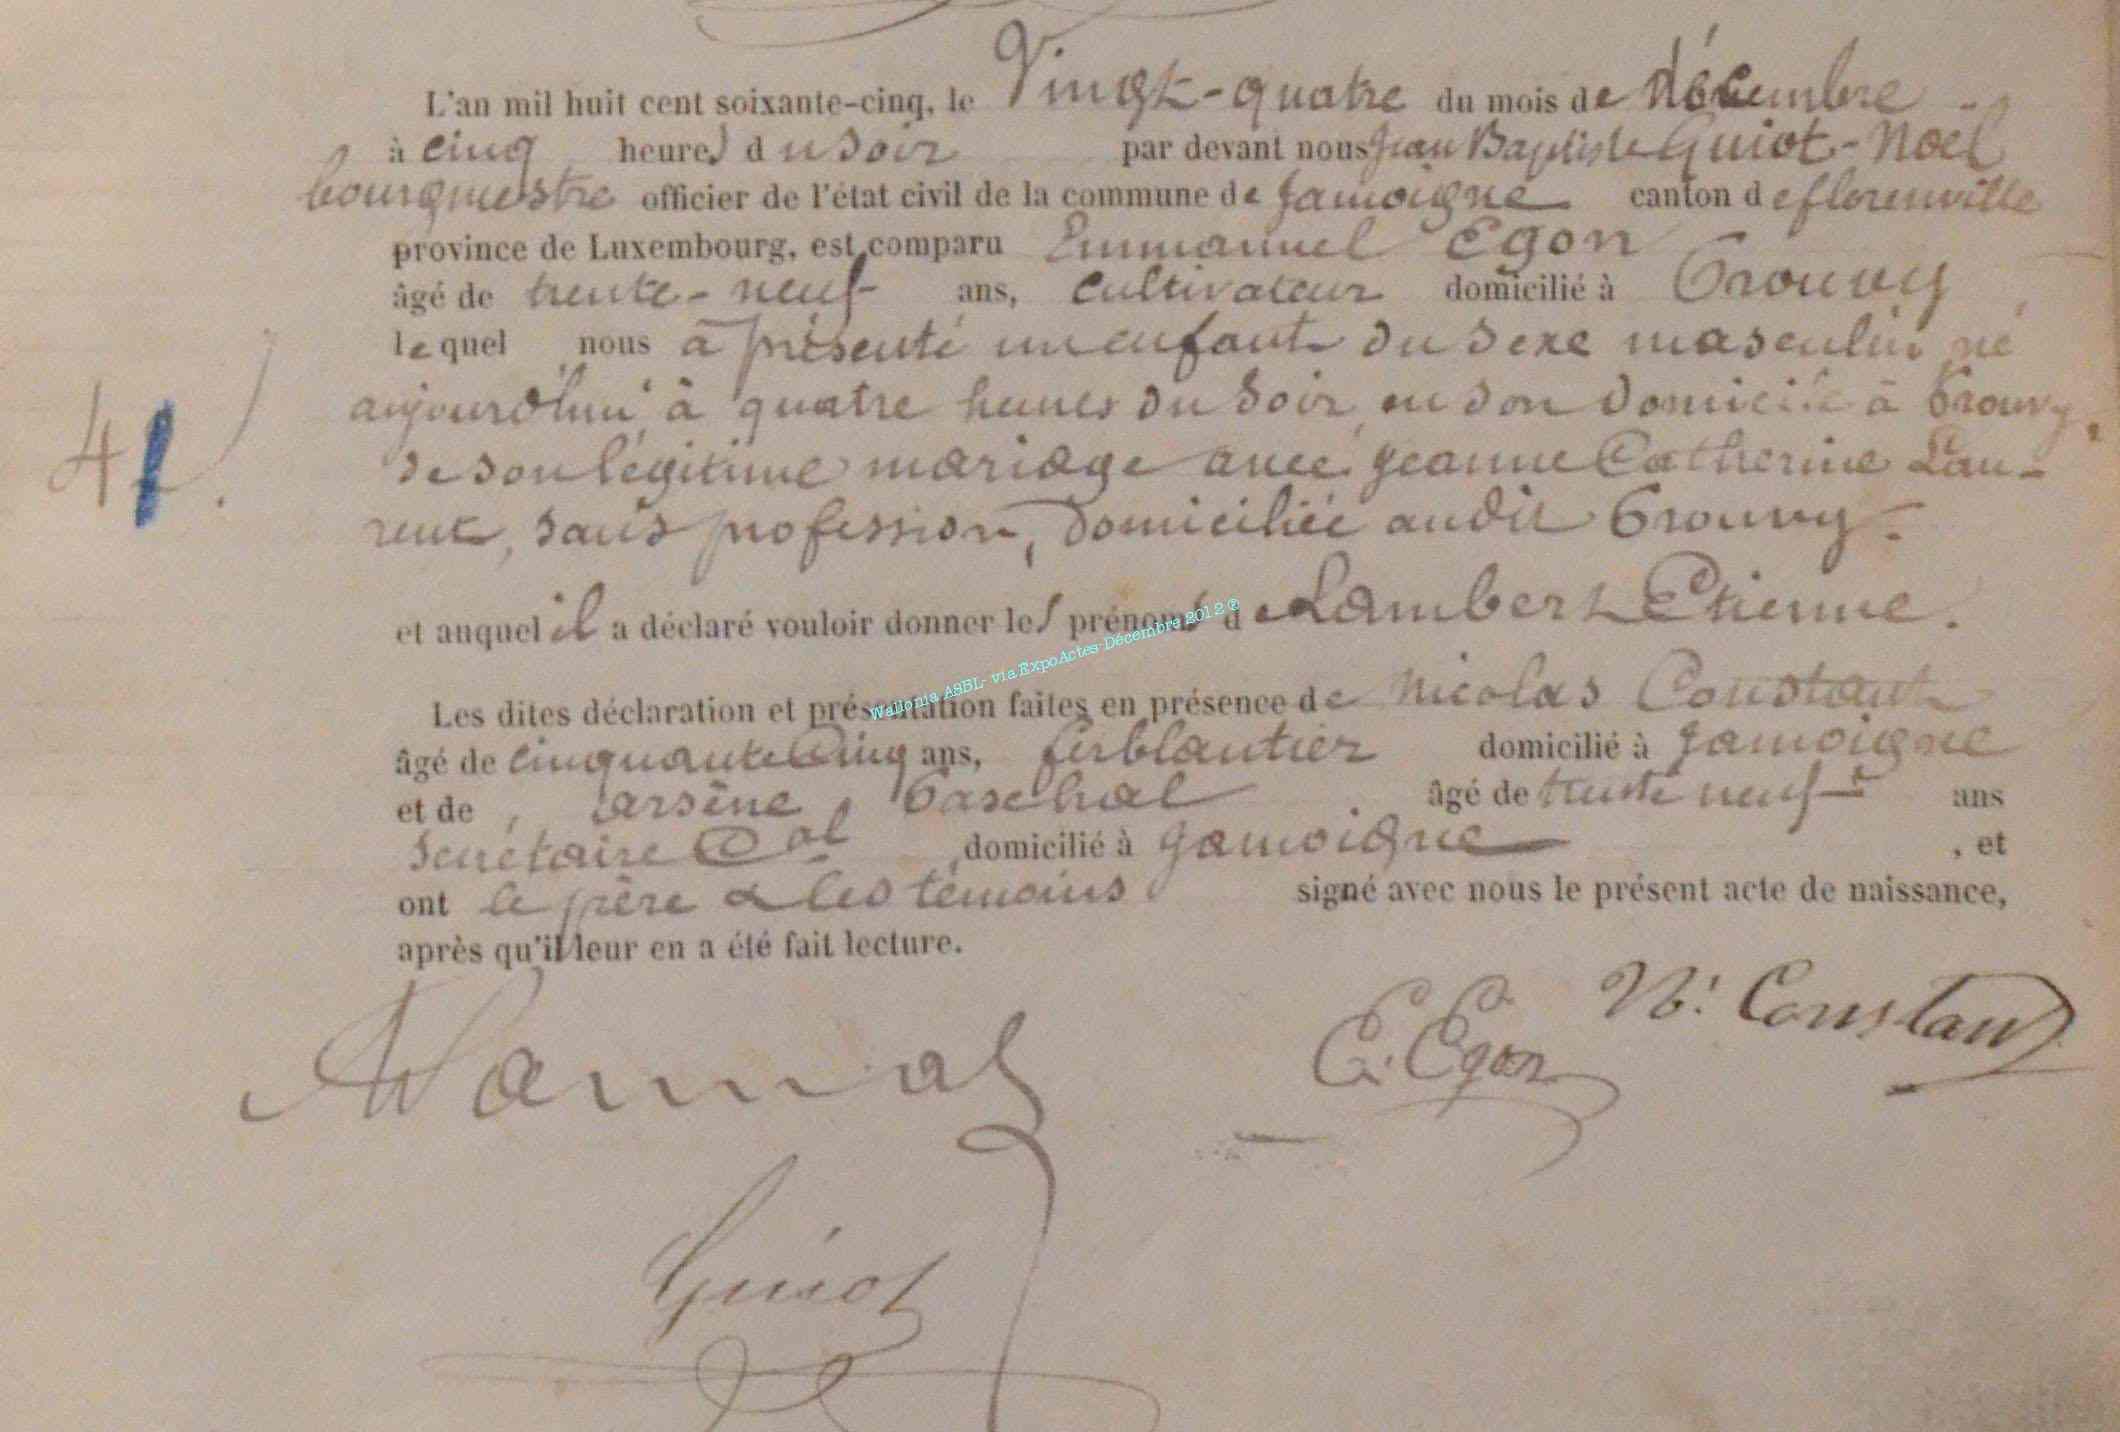 L'an mil huit cent soixante-cinq, le Vingt-quatre du mois de décembre
à cinq heures du soir par devant nous Jean Baptiste Guiot-Noël
bourgmestre officier de l'état civil de la commune de Jamoigne canton de florenville
province de Luxembourg, est comparu Emmanuel Egon
âgé de trente-neuf ans, cultivateur domicilié à Prouvy
lequel nous a présenté un enfant du sexe masculin né
41.
aujourd'hui à quatre heures du soir en son domicile à Prouvy,
de son légitime mariage avec Jeanne Catherine Lau-
rent, sans profession, domiciliée audit Prouvy.
et auquel il a déclaré vouloir donner les prénoms de Lambert Etienne.
Wallonia ASBL- via ExpoActes-Décembre 2012 ®
Les dites déclaration et présentation faites en présence de Nicolas Constant
âgé de cinquante cinq ans, ferblantier domicilié à Jamoigne
et de arsène Paschal âgé de trente neuf ans
secrétaire Cal domicilié à Jamoigne , et
ont le père & les témoins signé avec nous le présent acte de naissance,
après qu'il leur en a été fait lecture.
N. Constant
E. Egon
Guiot